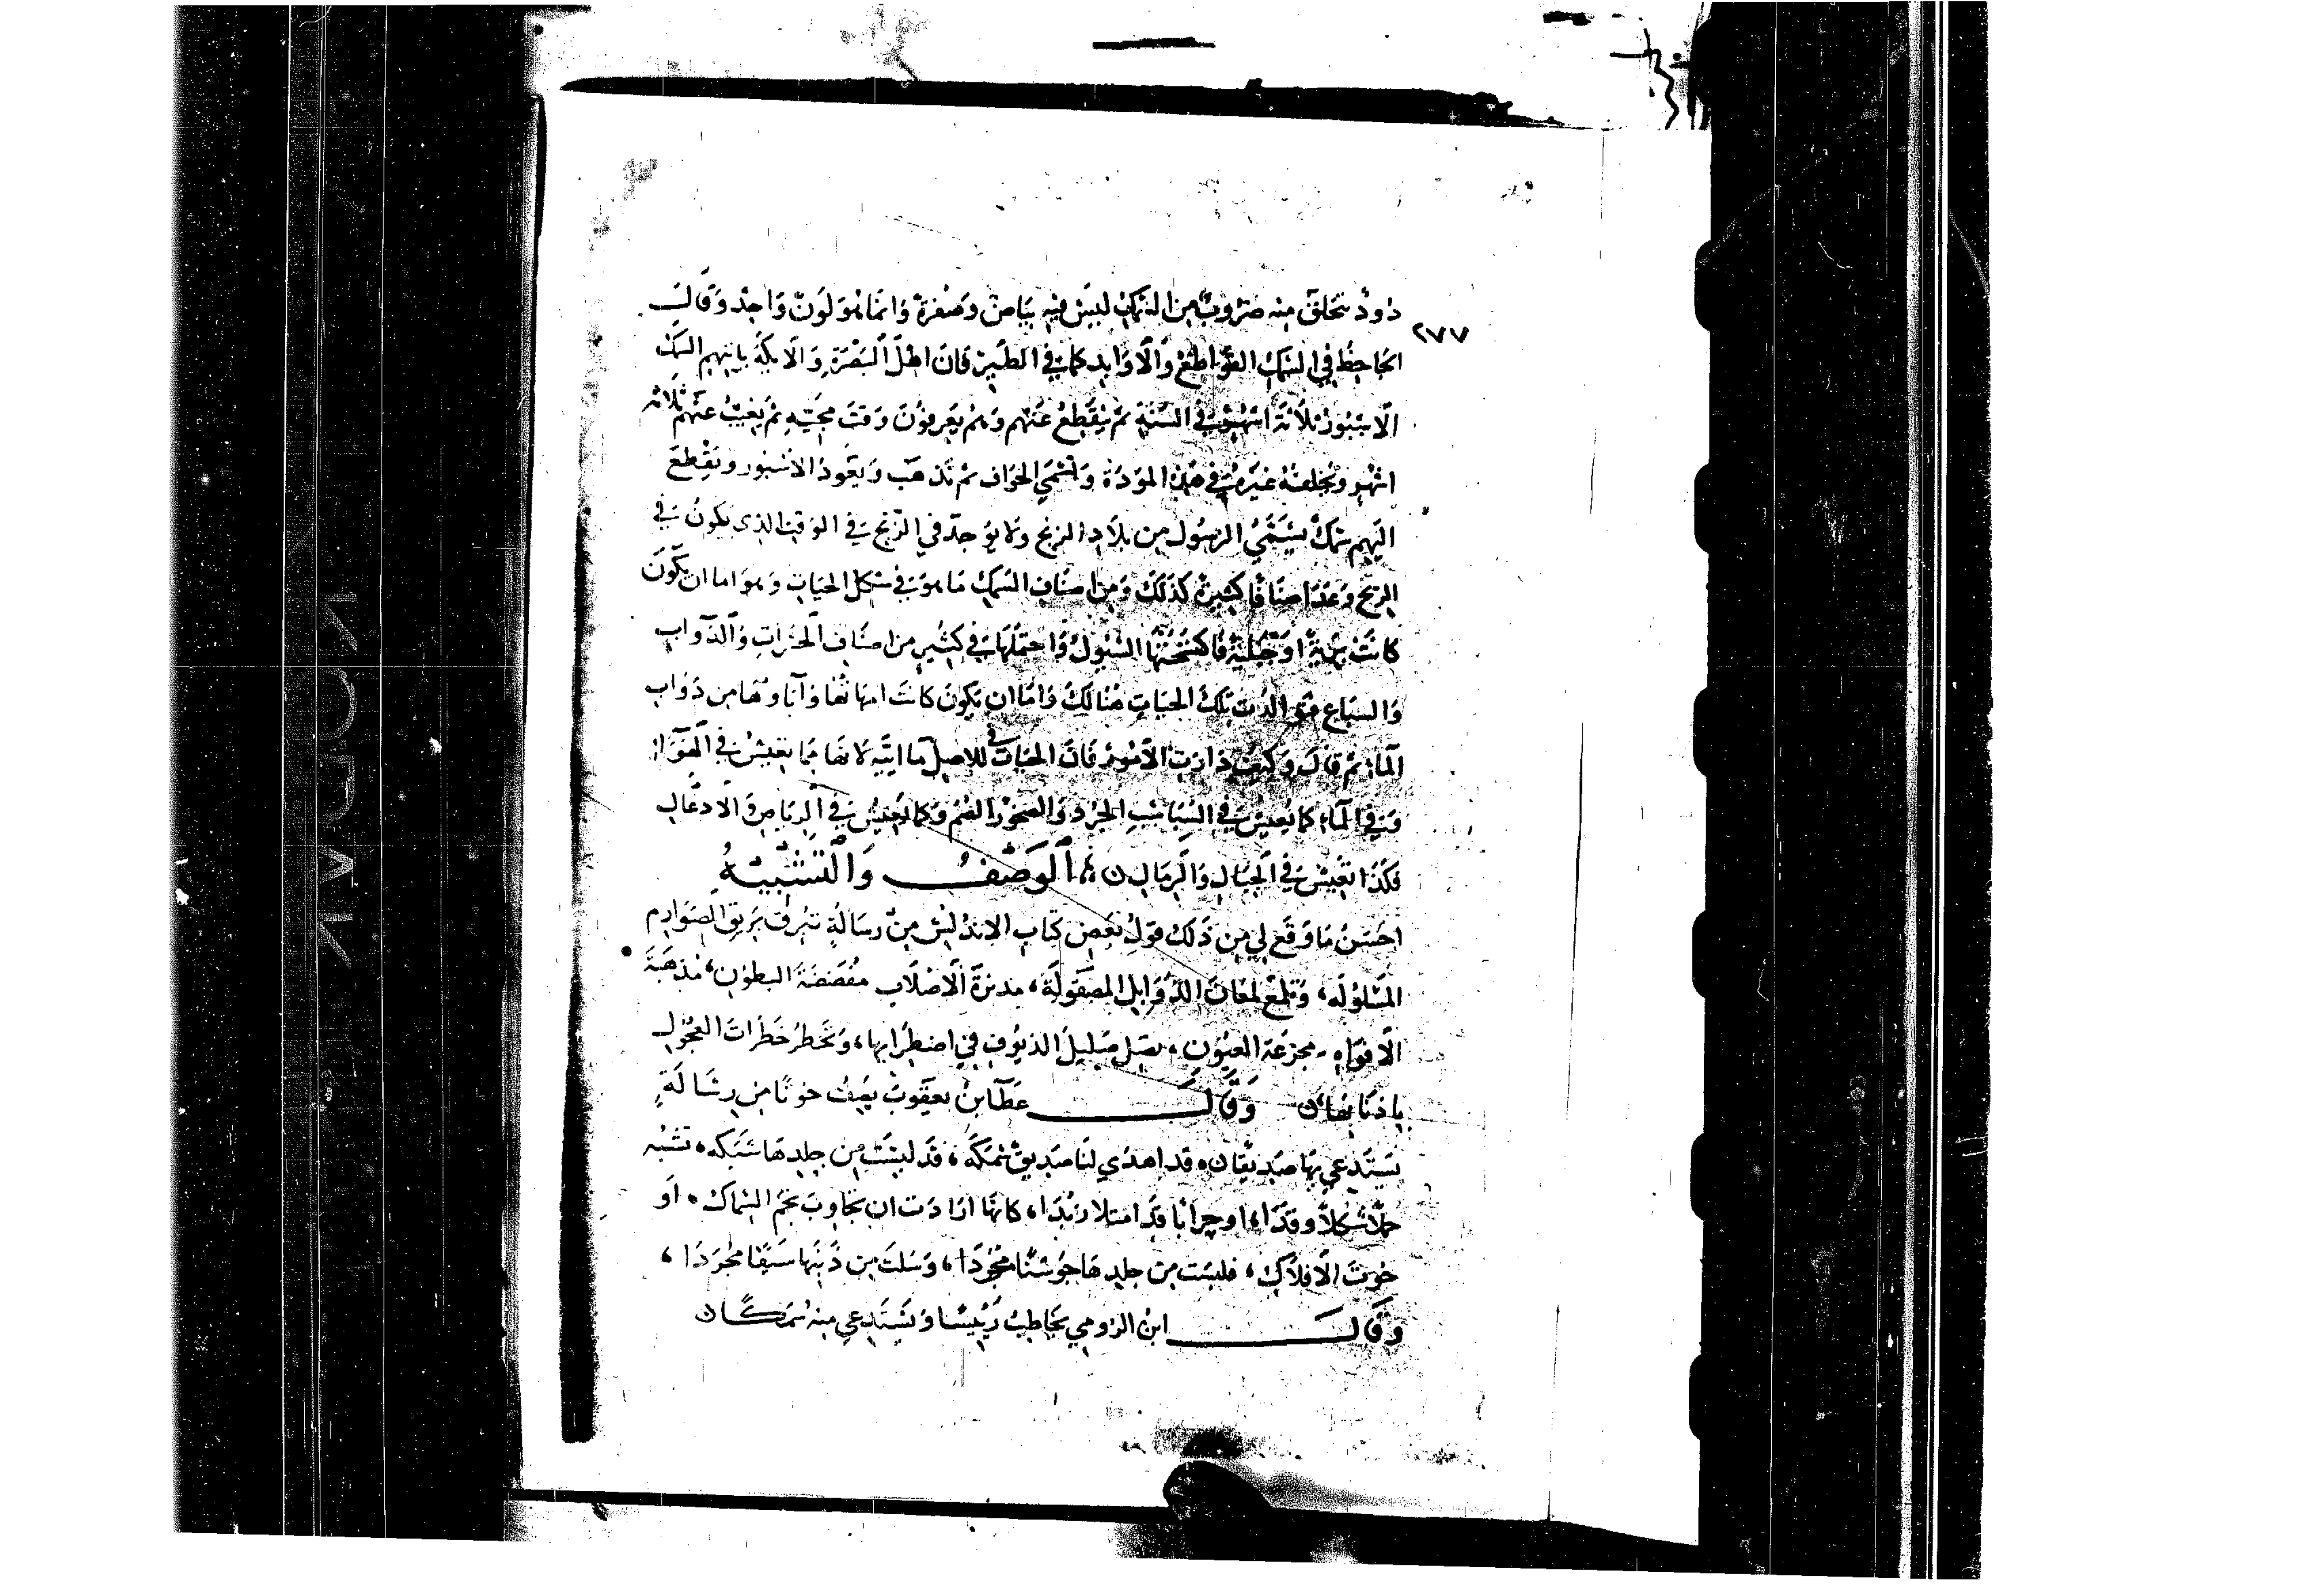 دود يتخلق منه ضروب من السمك ليس فيه بياض وصفرة وانما هو لون واحد وقال
٢٧٧
الجاحظ في السمك القواطع والاوابد كما في الطير فان اهل البصرة والابلة ياتيهم السمك
الاسبور ثلاثة اشهر في السنة ثم ينقطع عنهم وهم يعرفون وقت مجيه ثم يغيب عنهم ثلاثة
اشهر ويخلفه غيره في هذه المودة وتسمى الجواف ثم تذهب ويعود الاسبور ويقطع
اليهم سمك يسمى البرسوك من بلاد الزنج ولا يوجد في الزنج في الوقت الذي يكون في
الزنج وعد اصنافا كثيرة كذلك ومن اصناف السمك ما هو في شكل الحيات وهو اما ان يكون
كانت برية او جبلية فاكتسحتها السيول واحتملها في كثير من اصناف الحشرات والدواب
والسباع فتوالدت تلك الحيات هنالك واما ان يكون كانت امهاتها وآباوها من دواب
الماء ثم قال وكيف دارت الامور فان الحيات في الاصل مائية لانها مما يعيش في الهواء
وفي الماء كما يعيش في السباسب الجرد والصخور الصم وكما تعيش في الرياض والادغال
فكذا تعيش في الجبال والرمال ن الوصف والتشبيه
احسن ما وقع لي من ذلك قول بعض كتاب الاندلس من رسالة تبرق بريق الصوارم
المسلوله، وتلمع لمعان الذوابل المصقولة، مدنرة الاصلاب مفضضة البطون، مذهبة
الافواه، مجزعة العيون، تصل صليل الذيوف في اضطرابها، وتخطر خطرات الفحول
باذنابها ن وقال عطا بن يعقوب يصف حوتا من رسالة
يستدعي بها صديقا ن قد اهدي لنا صديق سمكه، قد لبست من جلدها شبكه، تشبه
حملا شكلا وقدا، او جرابا قد امتلا زبدا، كانها ارادت ان تجاوب نجم السماك، او
حوت الافلاك، فلبست من جلدها جوشنا مجردا، وسلت من ذنبها سيفا مجردا،
وقال ابن الرومي يخاطب رئيسا ويستدعي منه سمكا ن